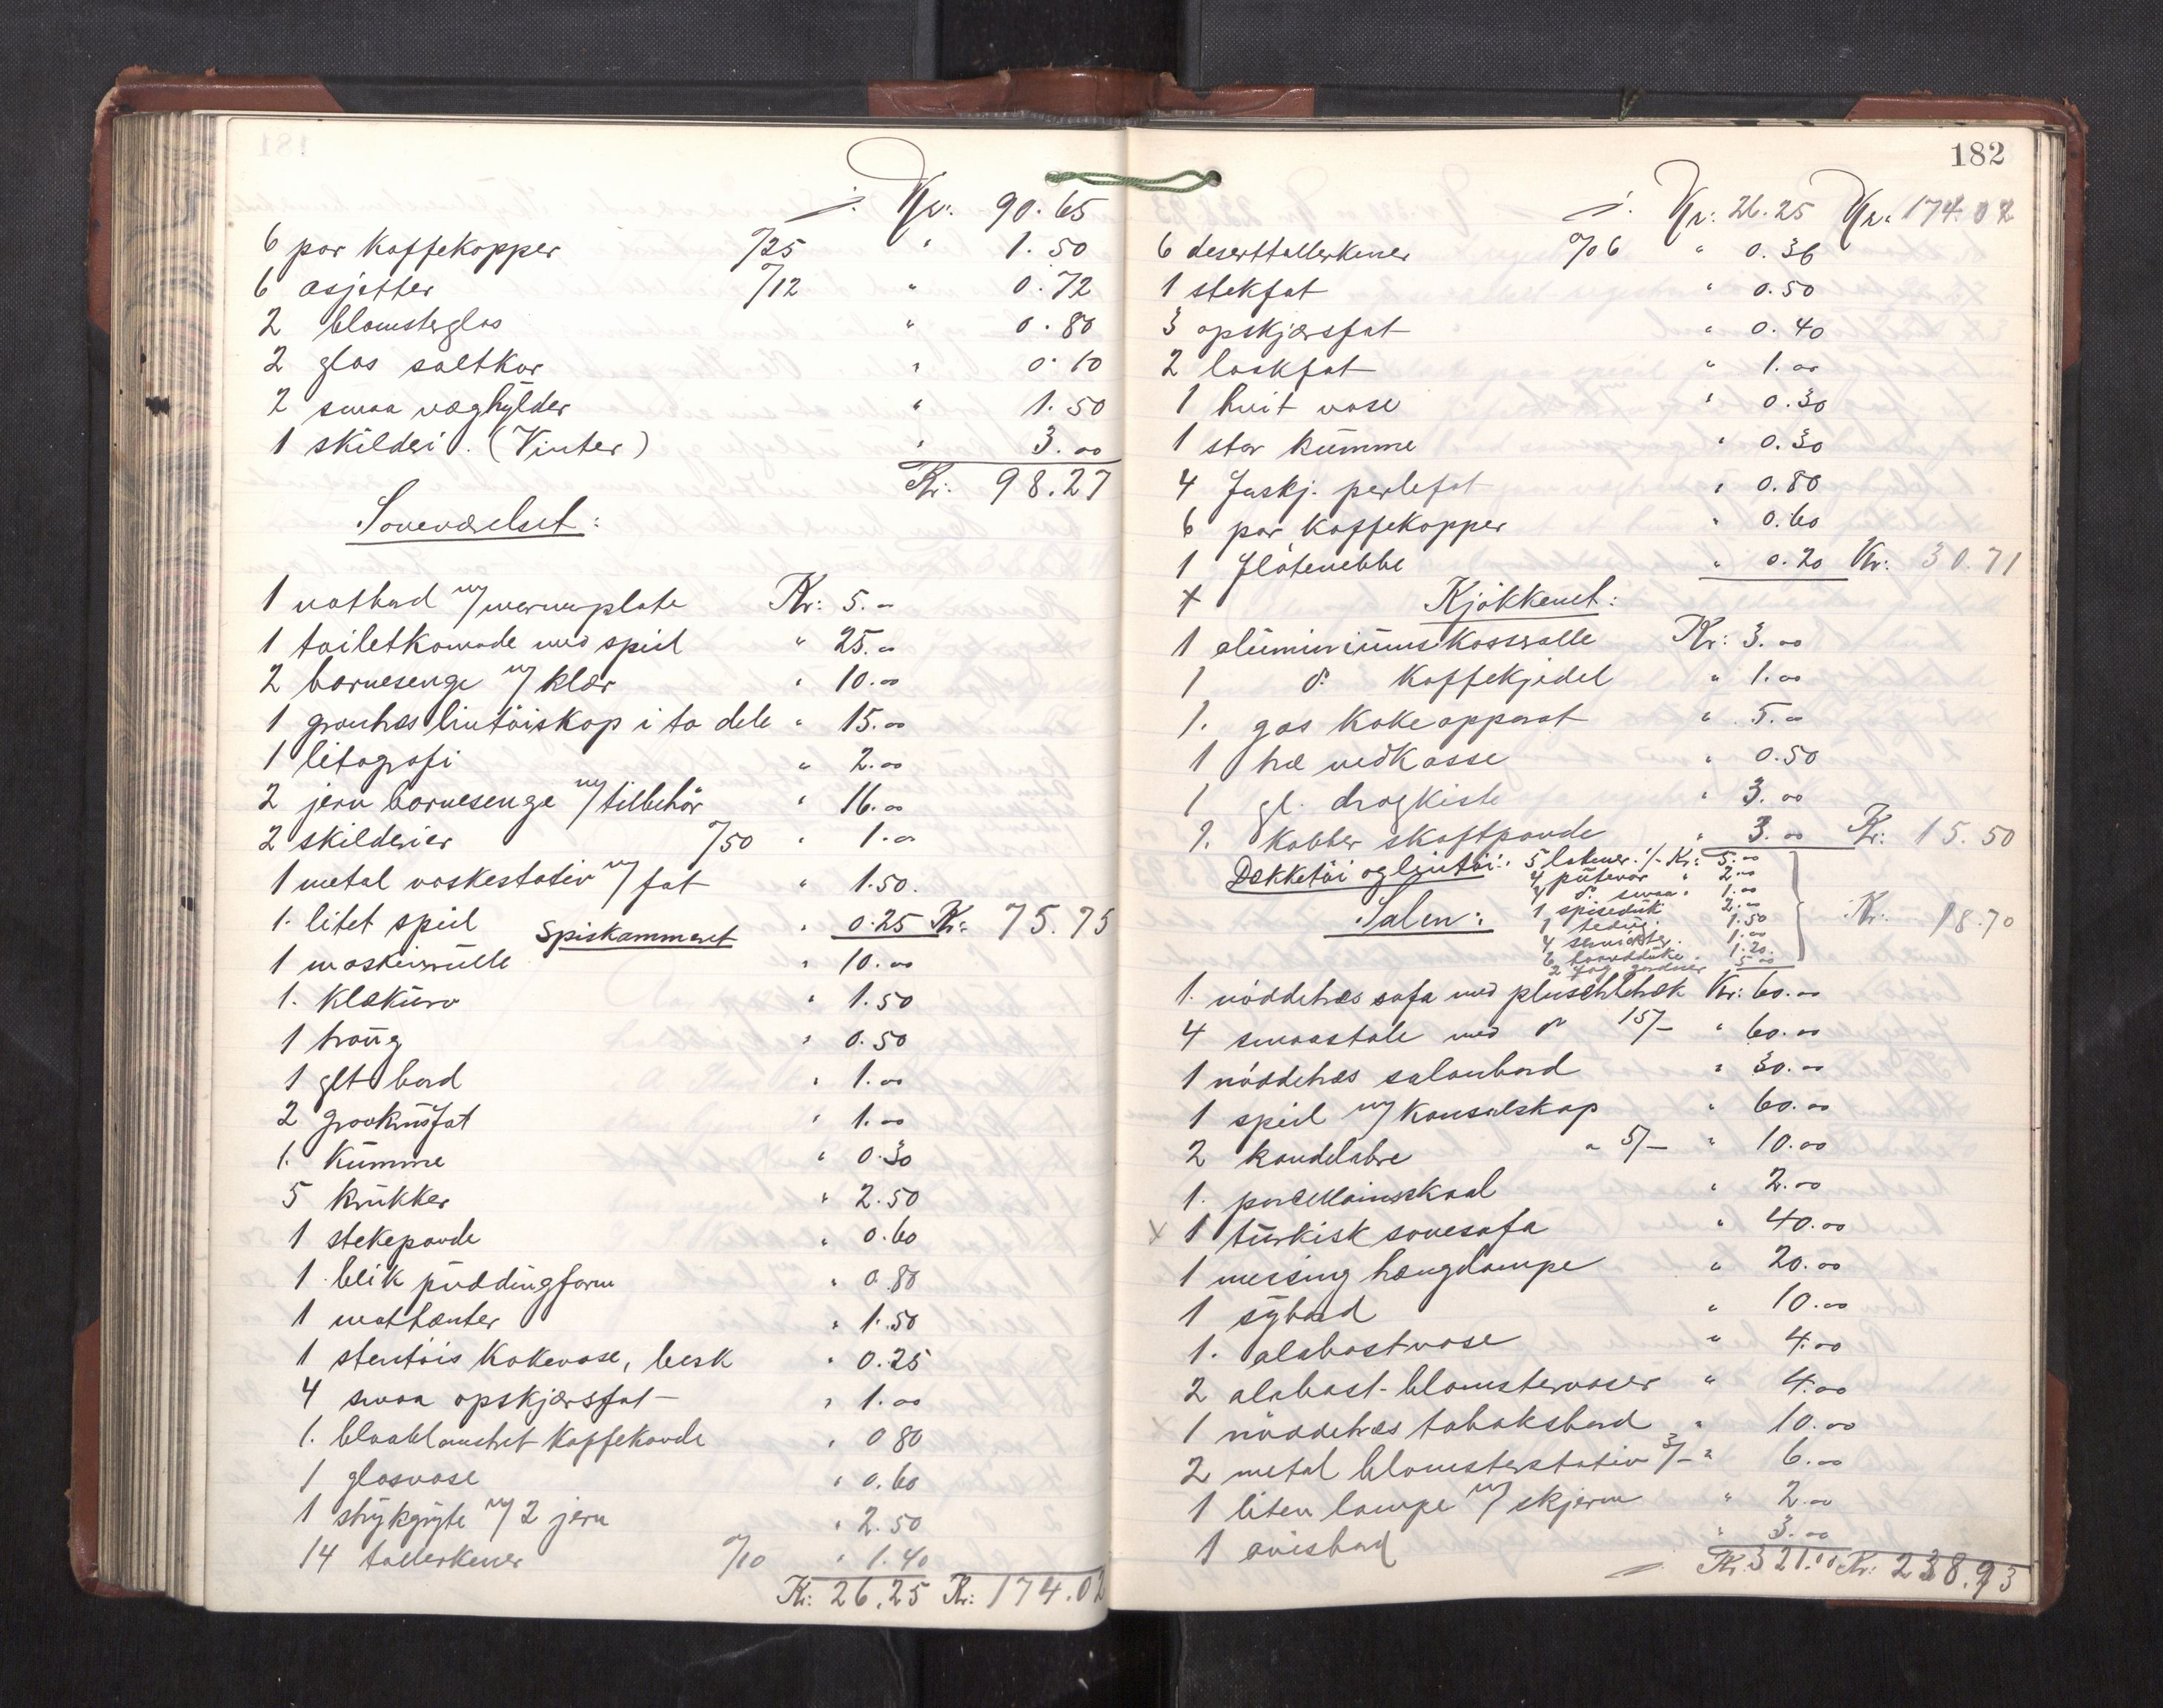 ./. Kr. 90.65
6 par Kaffekopper a/25 " 1.50
6 asjetter a/12 " 0.72
2 blomsterglas " 0.80
2 glas saltkar " 0.10
2 smaa væghylder " 1.50
1 skilderi. (Vinter) " 3.00
Kr. 98.27
Soveværelset:
1 natbord m/ marmorplate Kr: 5.-
1 toiletkomode med speil " 25.-
2 barnesenge m/ klær " 10.00
1 grantræs lintöiskap i to dele " 15.00
1 litografi " 2.00
2 jern barnesenge m/ tilbehör " 16.00
2 skilderier a/50 " 1.00
1 metal vaskestativ m/ fat " 1.50.
1. litet speil " 0.25 Kr: 75.75
Spiskammeret
1 maskinrulle " 10.00
1. klækurv " 1.50
1 traug " 0.50
1 glt bord " 1.00
2 graakrusfat " 1.00
1. Kumme " 0.30
5 krukker " 2.50
1 stekepande " 0.60
1 blik puddingform " 0.80
1 mathenter " 1.50
1 stentöis Kakevase, besk " 0.25
4 smaa opskjærsfat " 1.00
1. blaablomstret Kaffekande " 0 80
1 glasvase " 0.60
1 strykgryte m/ 2 jern " 2.50
14 tallerkener a/10 " 1.40
Kr: 26.25 Kr: 174.02
182
./. Kr: 26.25 Kr. 174.02
6 deserttallerkener a/06 " 0.36
1 stekfat " 0.50
3 opskjærsfat " 0.40
2 laskfat " 1.00
1 hvit vase " 0.30
1 stor kumme " 0.30
4 forskj. perlefat " 0.80
6 par Kaffekopper " 0.60
1 Flötenebbe " 0.20 Kr: 30.71
x Kjökkenet:
1 aluminiums Kasserolle Kr: 3.00
1 do Kaffekjedel " 1.00
1. gas Kokeapparat " 5.00
1 træ vedkasse " 0.50
1 gl. dragkiste " 3.00
1. Kobber skaftpande " 3.00 Kr: 15.50
Dækketöi og lintöi: 5 lakener 1/- Kr: 5.00
4 putevar " 2.00
4 do smaa " 1.00
1 spisedúk 2.00
1 tedug 1.50
4 servietter. 1.00
6 haandduke. 1.20.
2 fag gardiner 5.00
Kr. 18.70
Salen:
1. nöddetræs sofa med pluschtræk Kr: 60.00
4 smaastole med do 15/- " 60.00
1 nöddetræs salonbord " 30.00
1 speil m/ Konsolskap " 60.00
2 kandelabre a 5/- " 10.00
1. porcellainsskaal " 2.00
x 1 tyrkisk sovesofa " 40.00
1 messing hænglampe " 20.00
1 sybord " 10.00
1. alabastvase " 4.00
2 alabast-blomstervaser " 4.00
x 1 nöddetræs tobaksbord " 10.00
2 metal blomsterstativ 3/- " 6.00
1 liten lampe m/ skjerm " 2.00
1 avisbord " 3.00
./. Kr. 321.00 Kr. 238.93